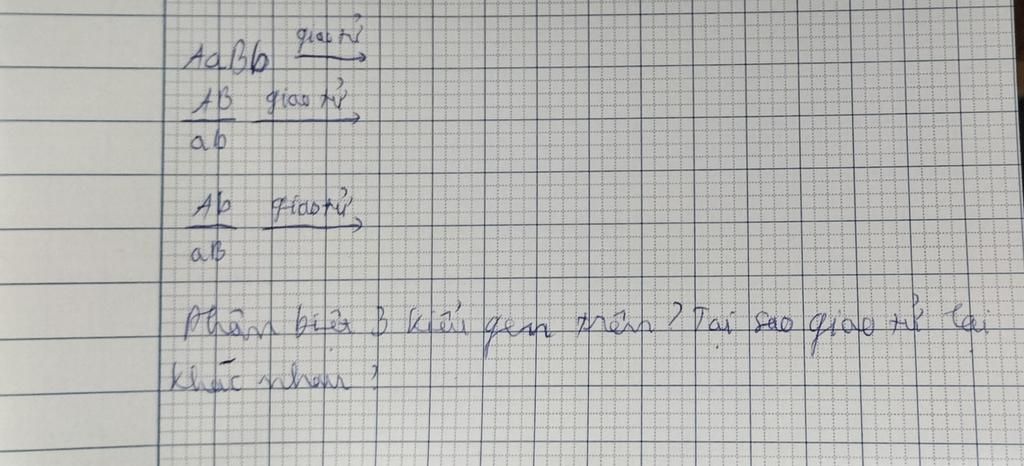 AaBb giao tử
AB giao tử
ab
Ab giao tử
aB
Phân biệt 3 kiểu gen trên? Tại sao giao tử lại
khác nhau?